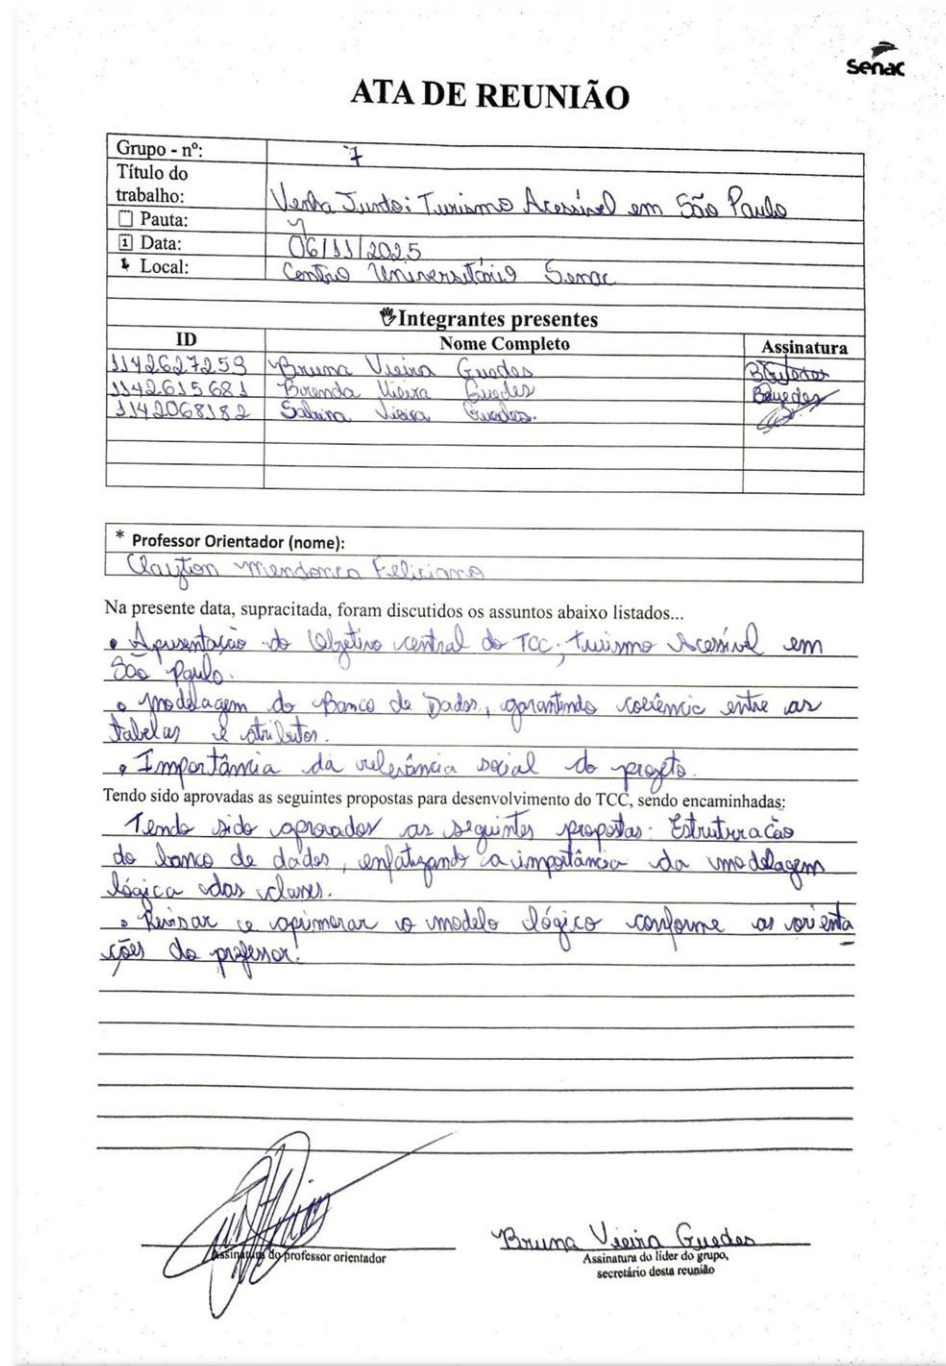 Senac
ATA DE REUNIÃO
Grupo - nº: 7
Título do
trabalho: Venha Junto: Turismo Acessível em São Paulo
Pauta: 7
Data: 06/11/2025
Local: Centro Universitário Senac
Integrantes presentes
ID Nome Completo Assinatura
1142627259 Bruna Vieira Guedes BGuedes
1142615681 Brenda Vieira Guedes BGuedes
1142068182 Sabrina Vieira Guedes.
* Professor Orientador (nome):
Clayton Mendonca Feliciano
Na presente data, supracitada, foram discutidos os assuntos abaixo listados...
• Apresentação do Objetivo central do TCC; Turismo Acessível em
São Paulo.
• Modelagem do Banco de Dados, garantindo coerência entre as
tabelas e atributos.
• Importância da relevância social do projeto.
Tendo sido aprovadas as seguintes propostas para desenvolvimento do TCC, sendo encaminhadas:
Tendo sido aprovados as seguintes propostas: Estruturacão
do banco de dados, enfatizando a importância da modelagem
lógica das classes.
• Revisar e aprimorar o modelo lógico conforme as orienta
ções do professor.
Assinatura do professor orientador
Bruna Vieira Guedes
Assinatura do líder do grupo,
secretário desta reunião